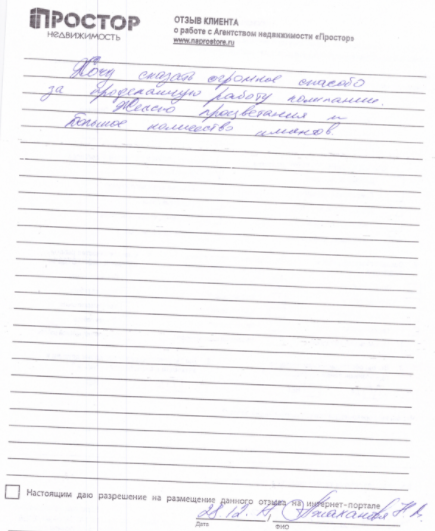 ПРОСТОР
НЕДВИЖИМОСТЬ
ОТЗЫВ КЛИЕНТА
о работе с Агентством недвижимости «Простор»
www.naprostore.ru
Хочу сказать огромное спасибо
за проделанную работу компании.
Желаю процветания и
большое количество клиентов
Настоящим даю разрешение на размещение данного отзыва на интернет-портале
Дата
ФИО